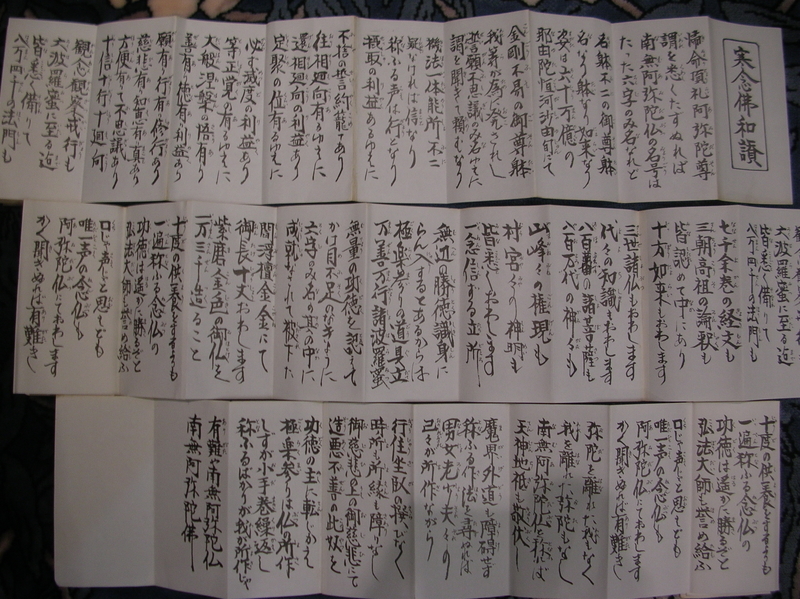 寒念佛和讃
帰命頂礼阿弥陀尊
謂を悉くたずぬれば
南無阿弥陀仏の名号は
たった六字のみ名なれど
名躰不二の御尊躰
名なり躰なり如来なり
姿は六十万億の
那由陀恒河沙由旬にて
金剛不易の御尊躰
我等が為に発されし
誓願不思議のみ名ゆえに
謂を聞きて頼むなり
機法一体能所不二
疑なければ信なり
称ふる声は行となり
摂取の利益あるゆえに
不信の誓約籠てあり
往相廻向有るゆえに
還相廻向の利益あり
定聚の位有るゆえに
必ず滅度の利益あり
等正覚の有るゆえに
大般涅槃の悟有り
善有り徳有り利益あり
願有り行有り修行あり
慈悲有り知恵有り真あり
方便有りて不思議あり
十信十行十廻向
観念観察戒行も
六波羅蜜に至る迄
皆悉く備りて
八万四千の法門も
六波羅蜜に至る迄
皆悉く備りて
八万四千の法門も
七千余巻の経文も
三朝高祖の論釈も
皆認めて中にあり
十方如来もおわします
三世諸仏もおわします
代々の知識もおわします
八百番の諸菩薩も
八百万代の神々も
山峰々の権現も
村宮々の神明も
皆悉くおわします
一念信ずる立所
無辺の勝徳識身に
らん入するとあるからは
極楽参りの道具立
万善万行諸波羅蜜
無量の功徳を認めて
かけ目不足のなきように
六字のみ名の其の中に
成就なされて被下た
閻浮檀金金にて
御長十丈おわします
紫磨金色の御仏を
一万三千造ること
十度の供養をするよりも
一遍称ふる念仏の
功徳は遥かに勝るぞと
弘法大師も誉め給ふ
口じゃ声じゃと思えども
唯一声の念仏も
阿弥陀仏にておわします
かく聞きぬれば有難き
十度の供養をするよりも
一遍称ふる念仏の
功徳は遥かに勝るぞと
弘法大師も誉め給ふ
口じゃ声じゃと思えども
唯一声の念仏も
阿弥陀仏にておわします
かく聞きぬれば有難き
弥陀を離れた我もなく
我を離れた弥陀もなし
南無阿弥陀仏を称れば
天神地祇も敬伏し
魔界外道も障碍せず
称ふる作法を尋ぬれば
男女老少夫々の
己々が所作ながら
行住坐臥の撰びなく
時所も所縁も障りなし
御慈悲の上の御慈悲にて
造悪不善の此奴を
功徳の主に転じかえ
極楽参りは仏の所作
しずが小手巻繰返し
称ふるばかりが我が所作じゃ
有難や南無阿弥陀仏
南無阿弥陀佛